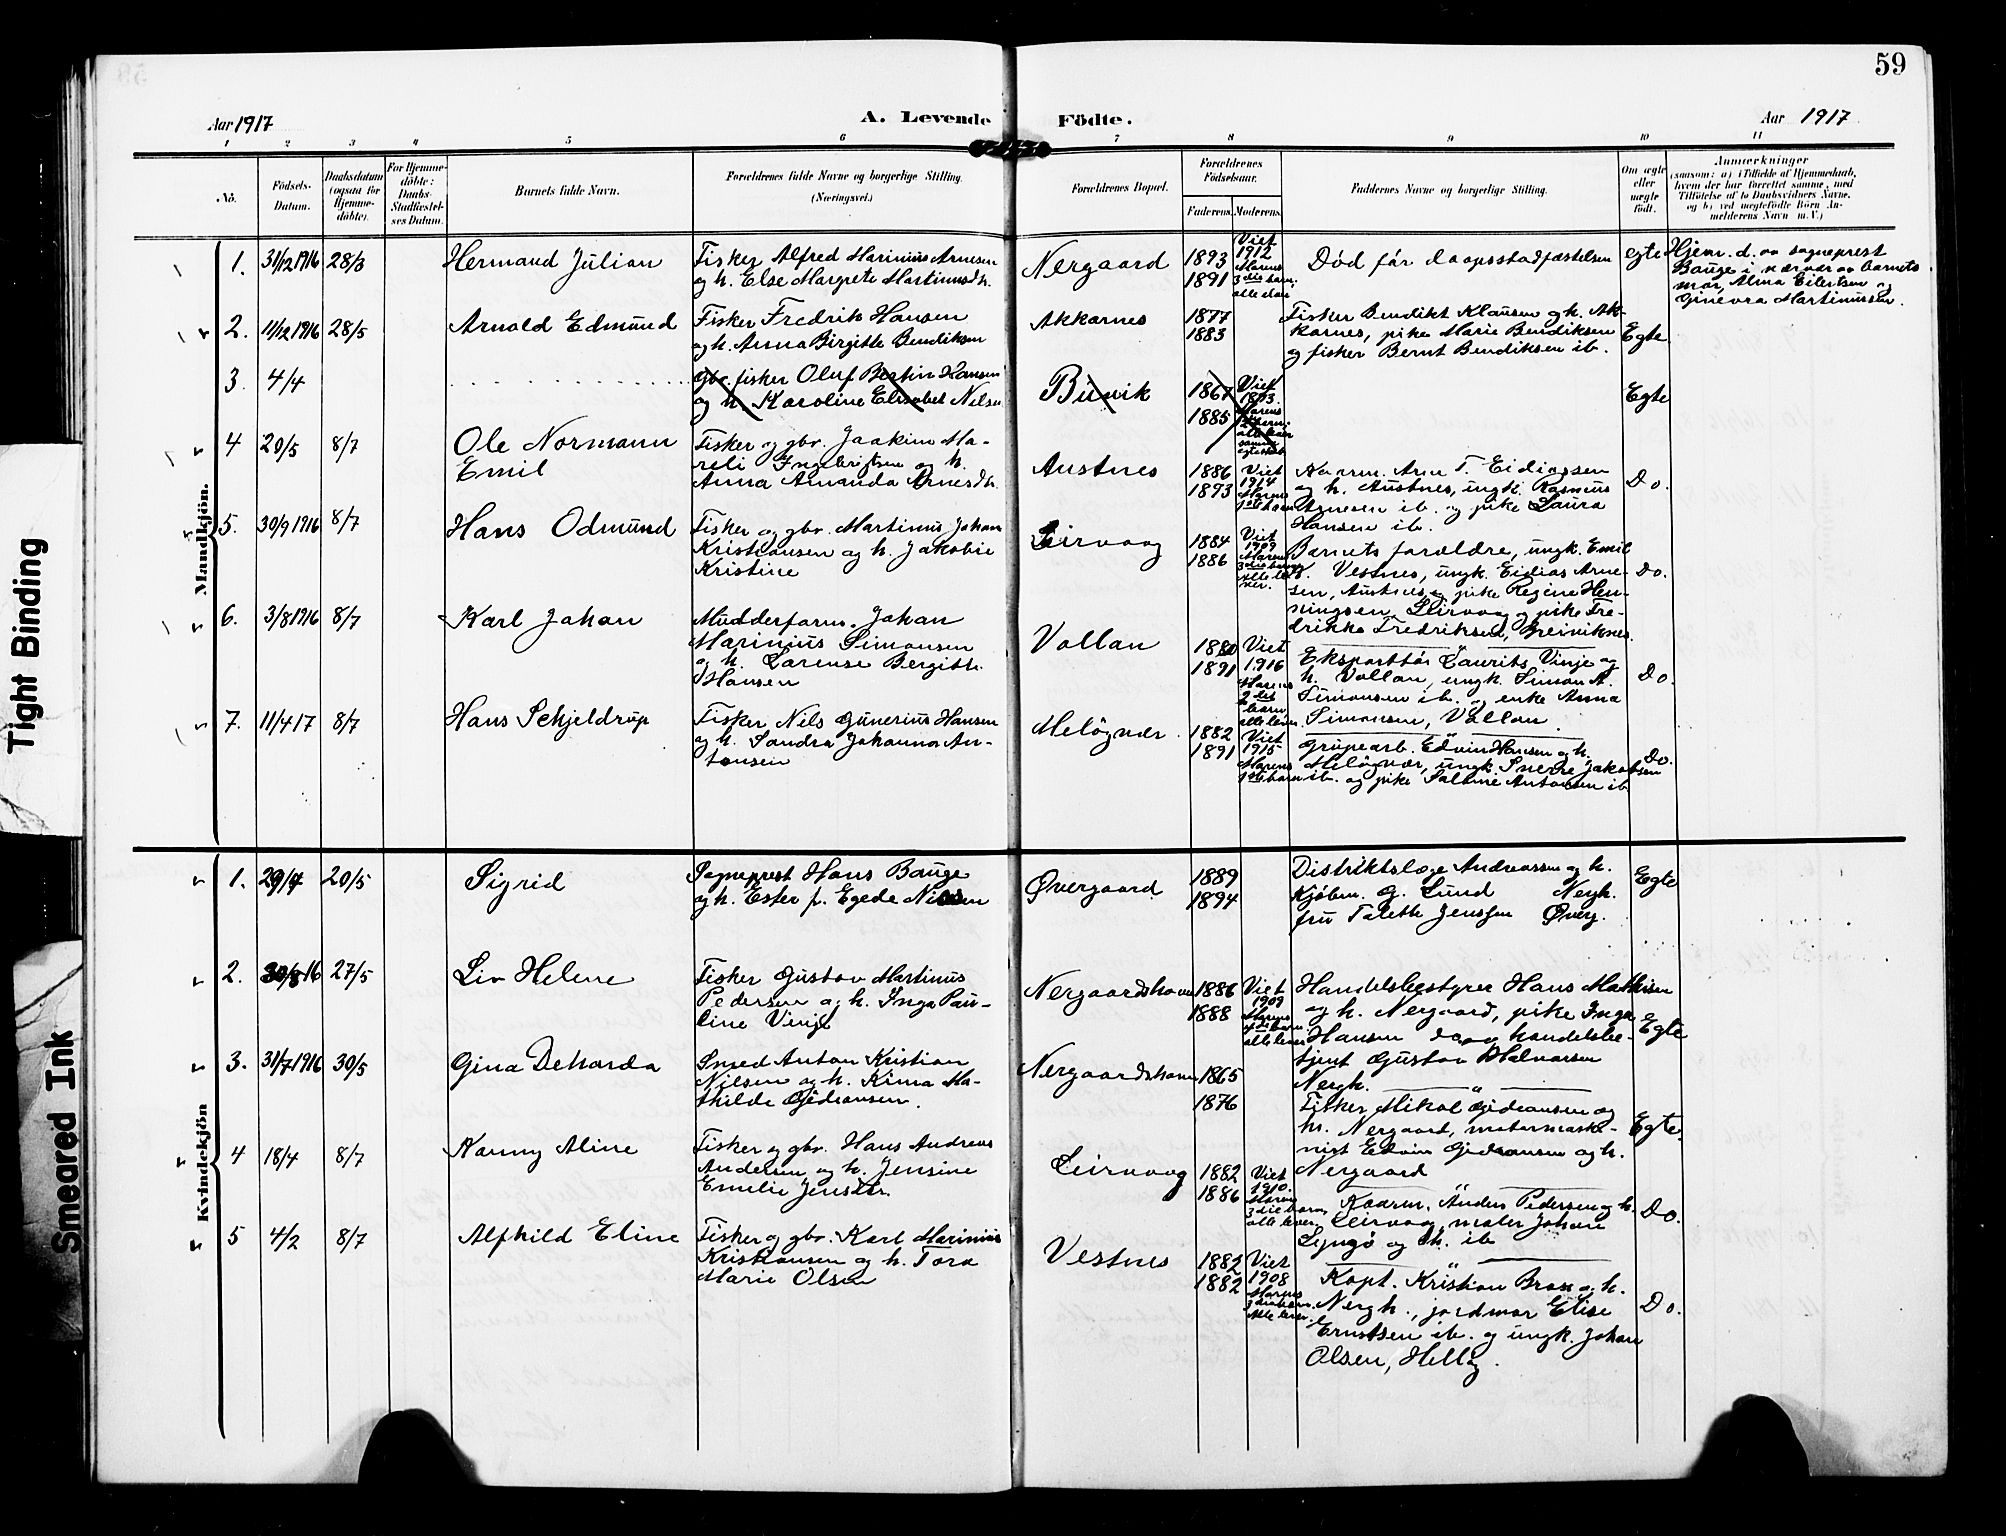 59
Aar 1917
A. Levende Födte.
Aar 1917
1 2 3 4 5 6 7 8 9 10 11
No.
Födsels-Datum.
Daabsdatum (ogsaa for Hjemme-döbte).
For Hjemme-döbte: Daabs-Stadfæstel-ses Datum.
Barnets fulde Navn.
Forældrenes fulde Navne og borgerlige Stilling.
(Næringsvei.)
Forældrenes Bopæl.
Forældrenes Födselsaar.
Faderens. Moderens.
Faddernes Navne og borgerlige Stilling.
Om ægte eller uægte födt.
Anmærkninger
(saasom: a) i Tilfælde af Hjemmedaab,
hvem der har forrettet samme, med
Tilföielse af to Daabsvidners Navne,
og b) ved uægtefödte Börn An-
melderens Navn m. V.)
Mandkjön.
1. 31/12 1916 28/3 Hermand Julian
Fisker Alfred Marinius Arnesen
og h. Else Margrete Martinusdt.
Nergaard
1893
1891
Viet
1912
Marens
3die barn
Død før daapsstadfæstelsen
egte
Hjem. d. av sogneprest
Bauge i nærvær av barnets
mor, Alma Eilertsen og
Ginevra Martinussen.
2. 11/12 1916 28/5 Arnold Edmund
Fisker Fredrik Hansen
og h. Anna Birgitte Bendiksen
Akkarnes
1877
1883
Fisker Bendikt Klausen og h. Ak-
karnes, pike Marie Bendiksen
og fisker Bernt Bendiksen ib.
Egte
3. 4/4
Gbr. fisker Oluf Bertin Hansen
og h. Karoline Elisabet Nilsen
Buvik
1867
1885
Viet
Egte
4 20/5 8/7 Ole Normann
Emil
Fisker og gbr. Joakim Ma-
reli Ingebrigtsen og h.
Anna Amanda Arnesdt.
Austnes
1886
1893
Viet
1914
Marens
1ste barn
Kaarm. Arn T. Eidissen
og h. Austnes, ungk. Rasmus
Arnesen ib. og pike Laura
Hansen ib.
Do.
5. 30/9 1916 8/7 Hans Odmund
Fisker og gbr. Martinus Johan
Kristiansen og h. Jakobie
Kristine
Leirvaag
1884
1886
Viet
1909
Marens
3die barn
Barnets forældre, ungk. Emil
Vestnes, ungk. Eidias Arne-
sen, Austnes, pike Regine Hen-
ningsen, Leirvaag og pike Fre-
drikke Fredriksen, Breiviknes.
Do.
6. 3/8 1916 8/7 Karl Johan
Mudderform. Johan
Marinius Simonsen
og h. Larense Bergitte
Hansen
Vollan
1880
1891
Viet
1916
Marens
2det
barn
alle lever
Eksportfør Laurits Vinje og
h. Vollan, ungk. Simon A.
Simonsen ib. og enke Anna
Simonsen, Vollan
Do.
7. 11/4 17 8/7 Hans Schjeldrup
Fisker Nils Gunerius Hansen
og h. Sandra Johanna An-
tonsen
Meløyvær
1882
1891
Viet
1915
Marens
1ste barn
Grupearb. Edvin Hansen og h.
Meløyvær, ungk. Snerre Jakobsen
ib. og pike Saltine Antonsen ib
Do.
Kvindekjön
1. 29/4 20/5 Sigrid
Sogneprest Hans Bauge
og h. Ester f. Egede Nissen
Øvergaard
1889
1894
Distriktslæge Andreassen og h.
Kjøbm. G. Lund Nergh.
fru Talette Jenssen Øverg.
Egte
2. 30/8 16 27/5 Liv Helene
Fisker Gustav Martinus
Pedersen og h. Inga Pau-
line Vinje
Nergaardshavn
1886
1888
Viet
1909
Marens
4de barn
alle lever
Handelsbestyrer Hans Mathisen
og h. Nergaard, pike Inga
Hansen do og handelsbe-
tjent Gustav Halvorsen
Nergh.
Egte
3. 31/7 1916 30/5 Gina Deharda
Smed Anton Kristian
Nilsen og h. Kima Ma-
thilde Gideonsen.
Nergaardshavn
1865
1876
Fisker Mikal Gideonsen og
h. Nergaard, motormaski-
nist Edvin Gideonsen og h.
Nergaard
Egte.
4 18/4 8/7 Nanny Aline
Fisker og gbr. Hans Andreas
Andersen og h. Jensine
Emelie Jensdtr.
Leirvaag
1882
1886
Viet
1910.
Marens
3die barn
alle lever
Kaarm. Anders Pedersen og h.
Leirvaag, maler Johan
Lyngø og h. ib
Do.
5 4/2 8/7 Alfhild Eline
Fisker og gbr. Karl Marinius
Kristiansen og h. Tora
Marie Olsen
Vestnes
1882
1882
Viet
1908
Marens
3die barn.
Alle lever.
Kapt. Kristian Brox og h.
Nergh., jordmor Elise
Ernstsen ib. og ungk. Johan
Olsen, Helløy.
Do.
Tight Binding
Smeared Ink